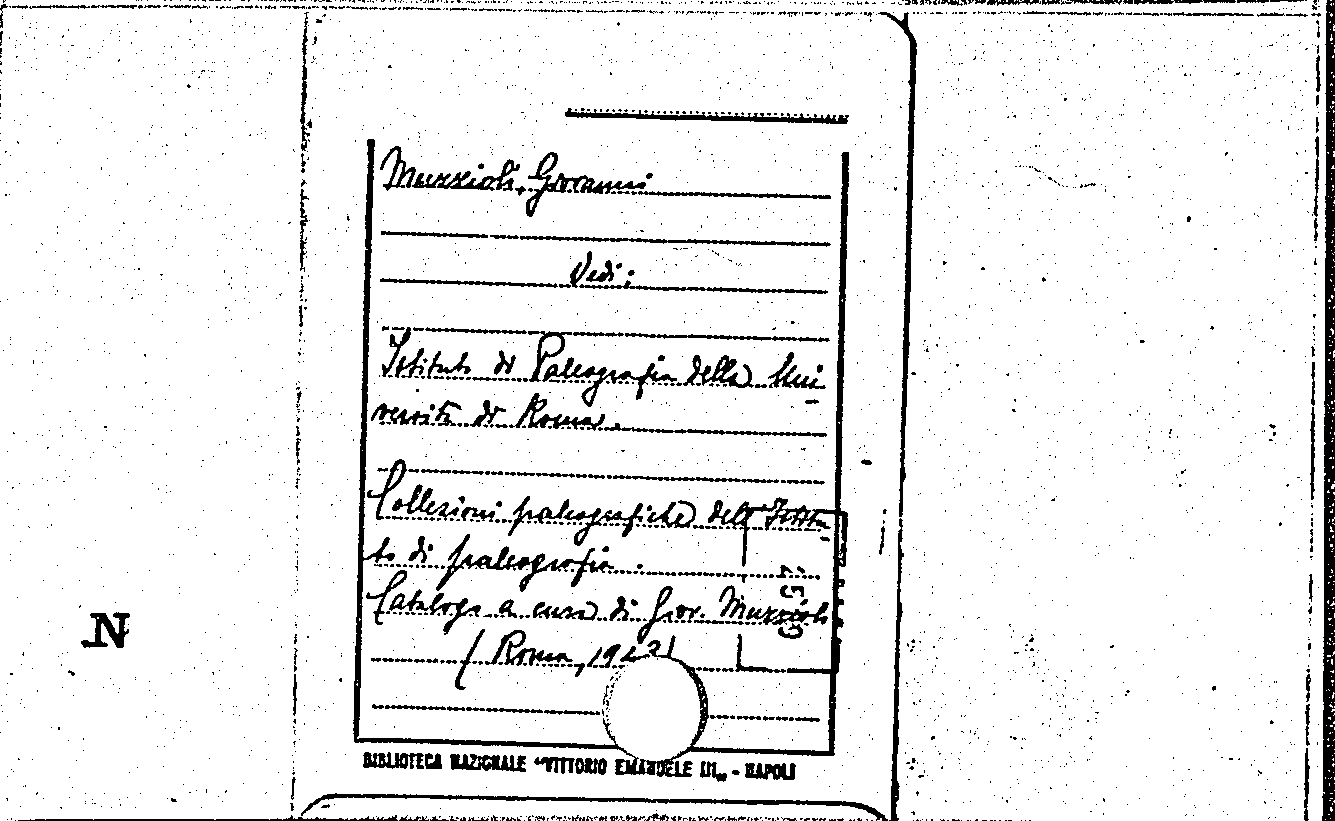 Muzzioli, Giovanni
Vedi:
Istituto di Paleografia della Uni
versità di Roma.
Collezioni paleografiche dell'Istitu
to di paleografia.
Catalogo a cura di Giov. Muzzioli
(Roma,
BIBLIOTECA NAZIONALE "VITTORIO EMANUELE III„ - NAPOLI
N